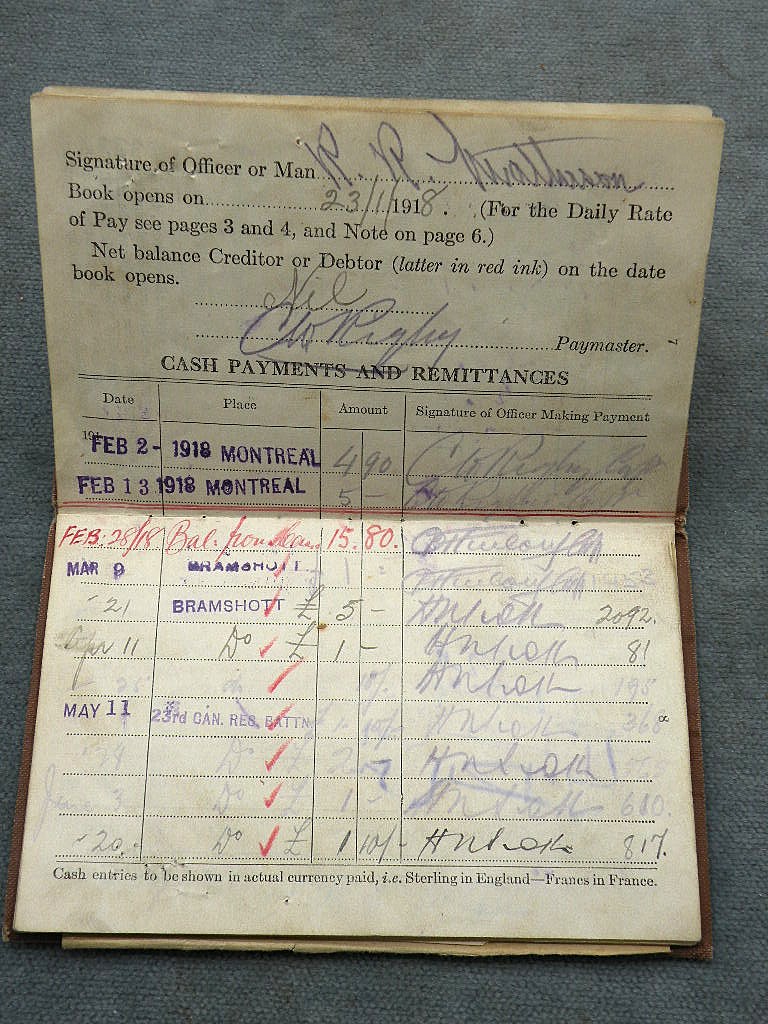 Signature of Officer or Man R. R.
Book opens on 23/1/1918. (For the Daily Rate
of Pay see pages 3 and 4, and Note on page 6.)
Net balance Creditor or Debtor (latter in red ink) on the date
book opens.
Nil
C W Rigby Paymaster.
7
CASH PAYMENTS AND REMITTANCES
Date Place Amount Signature of Officer Making Payment
191 FEB 2- 1918 MONTREAL 4 90 C W Rigby Capt
FEB 13 1918 MONTREAL 5 -
FEB. 28/18 Bal. from 15. 80.
MAR 9 BRAMSHOTT 1
- 21 BRAMSHOTT £ 5 - 2092.
Apr 11 Do £ 1 - 81
25 do 10/- 195
MAY 11 23rd CAN. RES. BATTN 1 10/- 368
Do £ 2
June 3 Do £ 1 - 610
- 20. Do £ 1 10/- 817.
Cash entries to be shown in actual currency paid, i.e. Sterling in England—Francs in France.